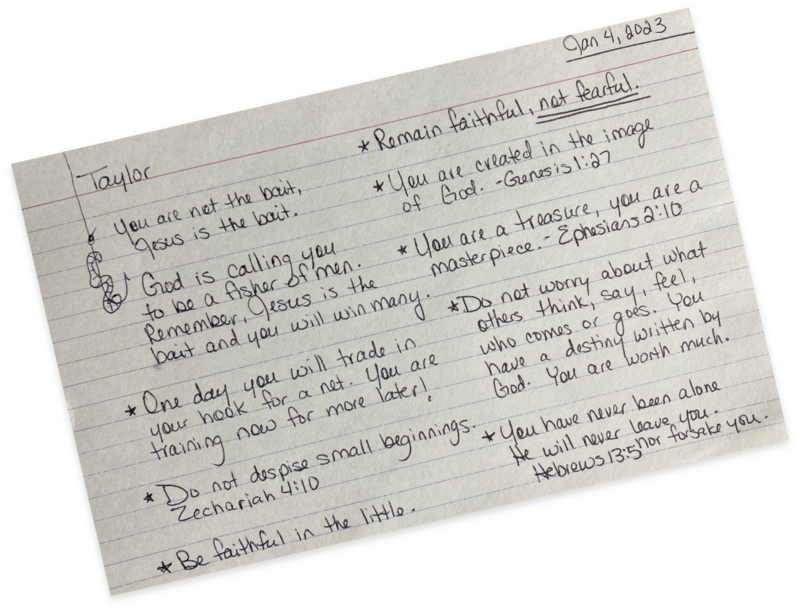 Jan 4, 2023
Taylor
You are not the bait,
Jesus is the bait.
God is calling you
to be a fisher of men.
Remember, Jesus is the
bait and you will win many.
* One day you will trade in
your hook for a net. You are
training now for more later!
* Do not despise small beginnings.
Zechariah 4:10
* Be faithful in the little.
* Remain faithful, not fearful.
* You are created in the image
of God. - Genesis 1:27
* You are a treasure, you are a
masterpiece. - Ephesians 2:10
* Do not worry about what
others think, say, feel,
who comes or goes. You
have a destiny written by
God. You are worth much.
* You have never been alone
He will never leave you.
Hebrews 13:5 nor forsake you.